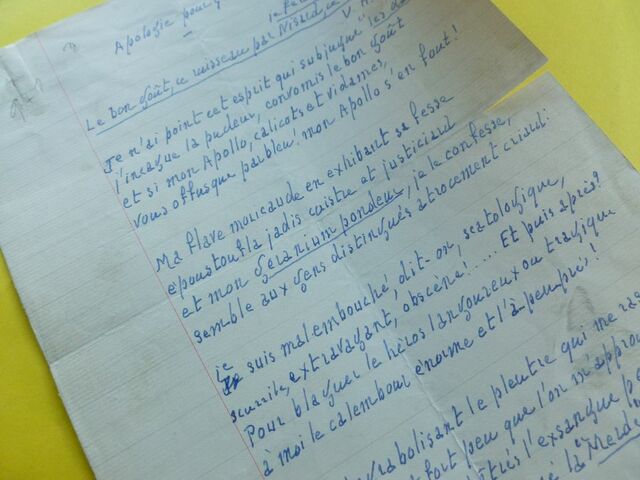 Apologie pour
Le bon goût, ce ruisseau par Nisard,
V. H.
Je n'ai point cet esprit qui subjugue les da
l'incague la pudeur, convomis le bon goût
et si mon Apollo, calicots et vidames,
vous offusque parbleu! mon Apollo s'en fout!
Ma flave moucaude en exhibant sa fesse
époustoufla jadis cuistre et justiciard
et mon Geranium pondeur, je le confesse,
semble aux gens distingués atrocement criard:
je suis malembouché, dit-on, scatologique,
scurrile, extravagant, obscène!..... Et puis après?
Pour blaguer le héros langoureux ou tragique
à moi le calembour énorme et l'à peu près!
rabolisant le pleutre qui me ra
fort peu que l'on m'appro
l'exsangue pe
la "Merde"